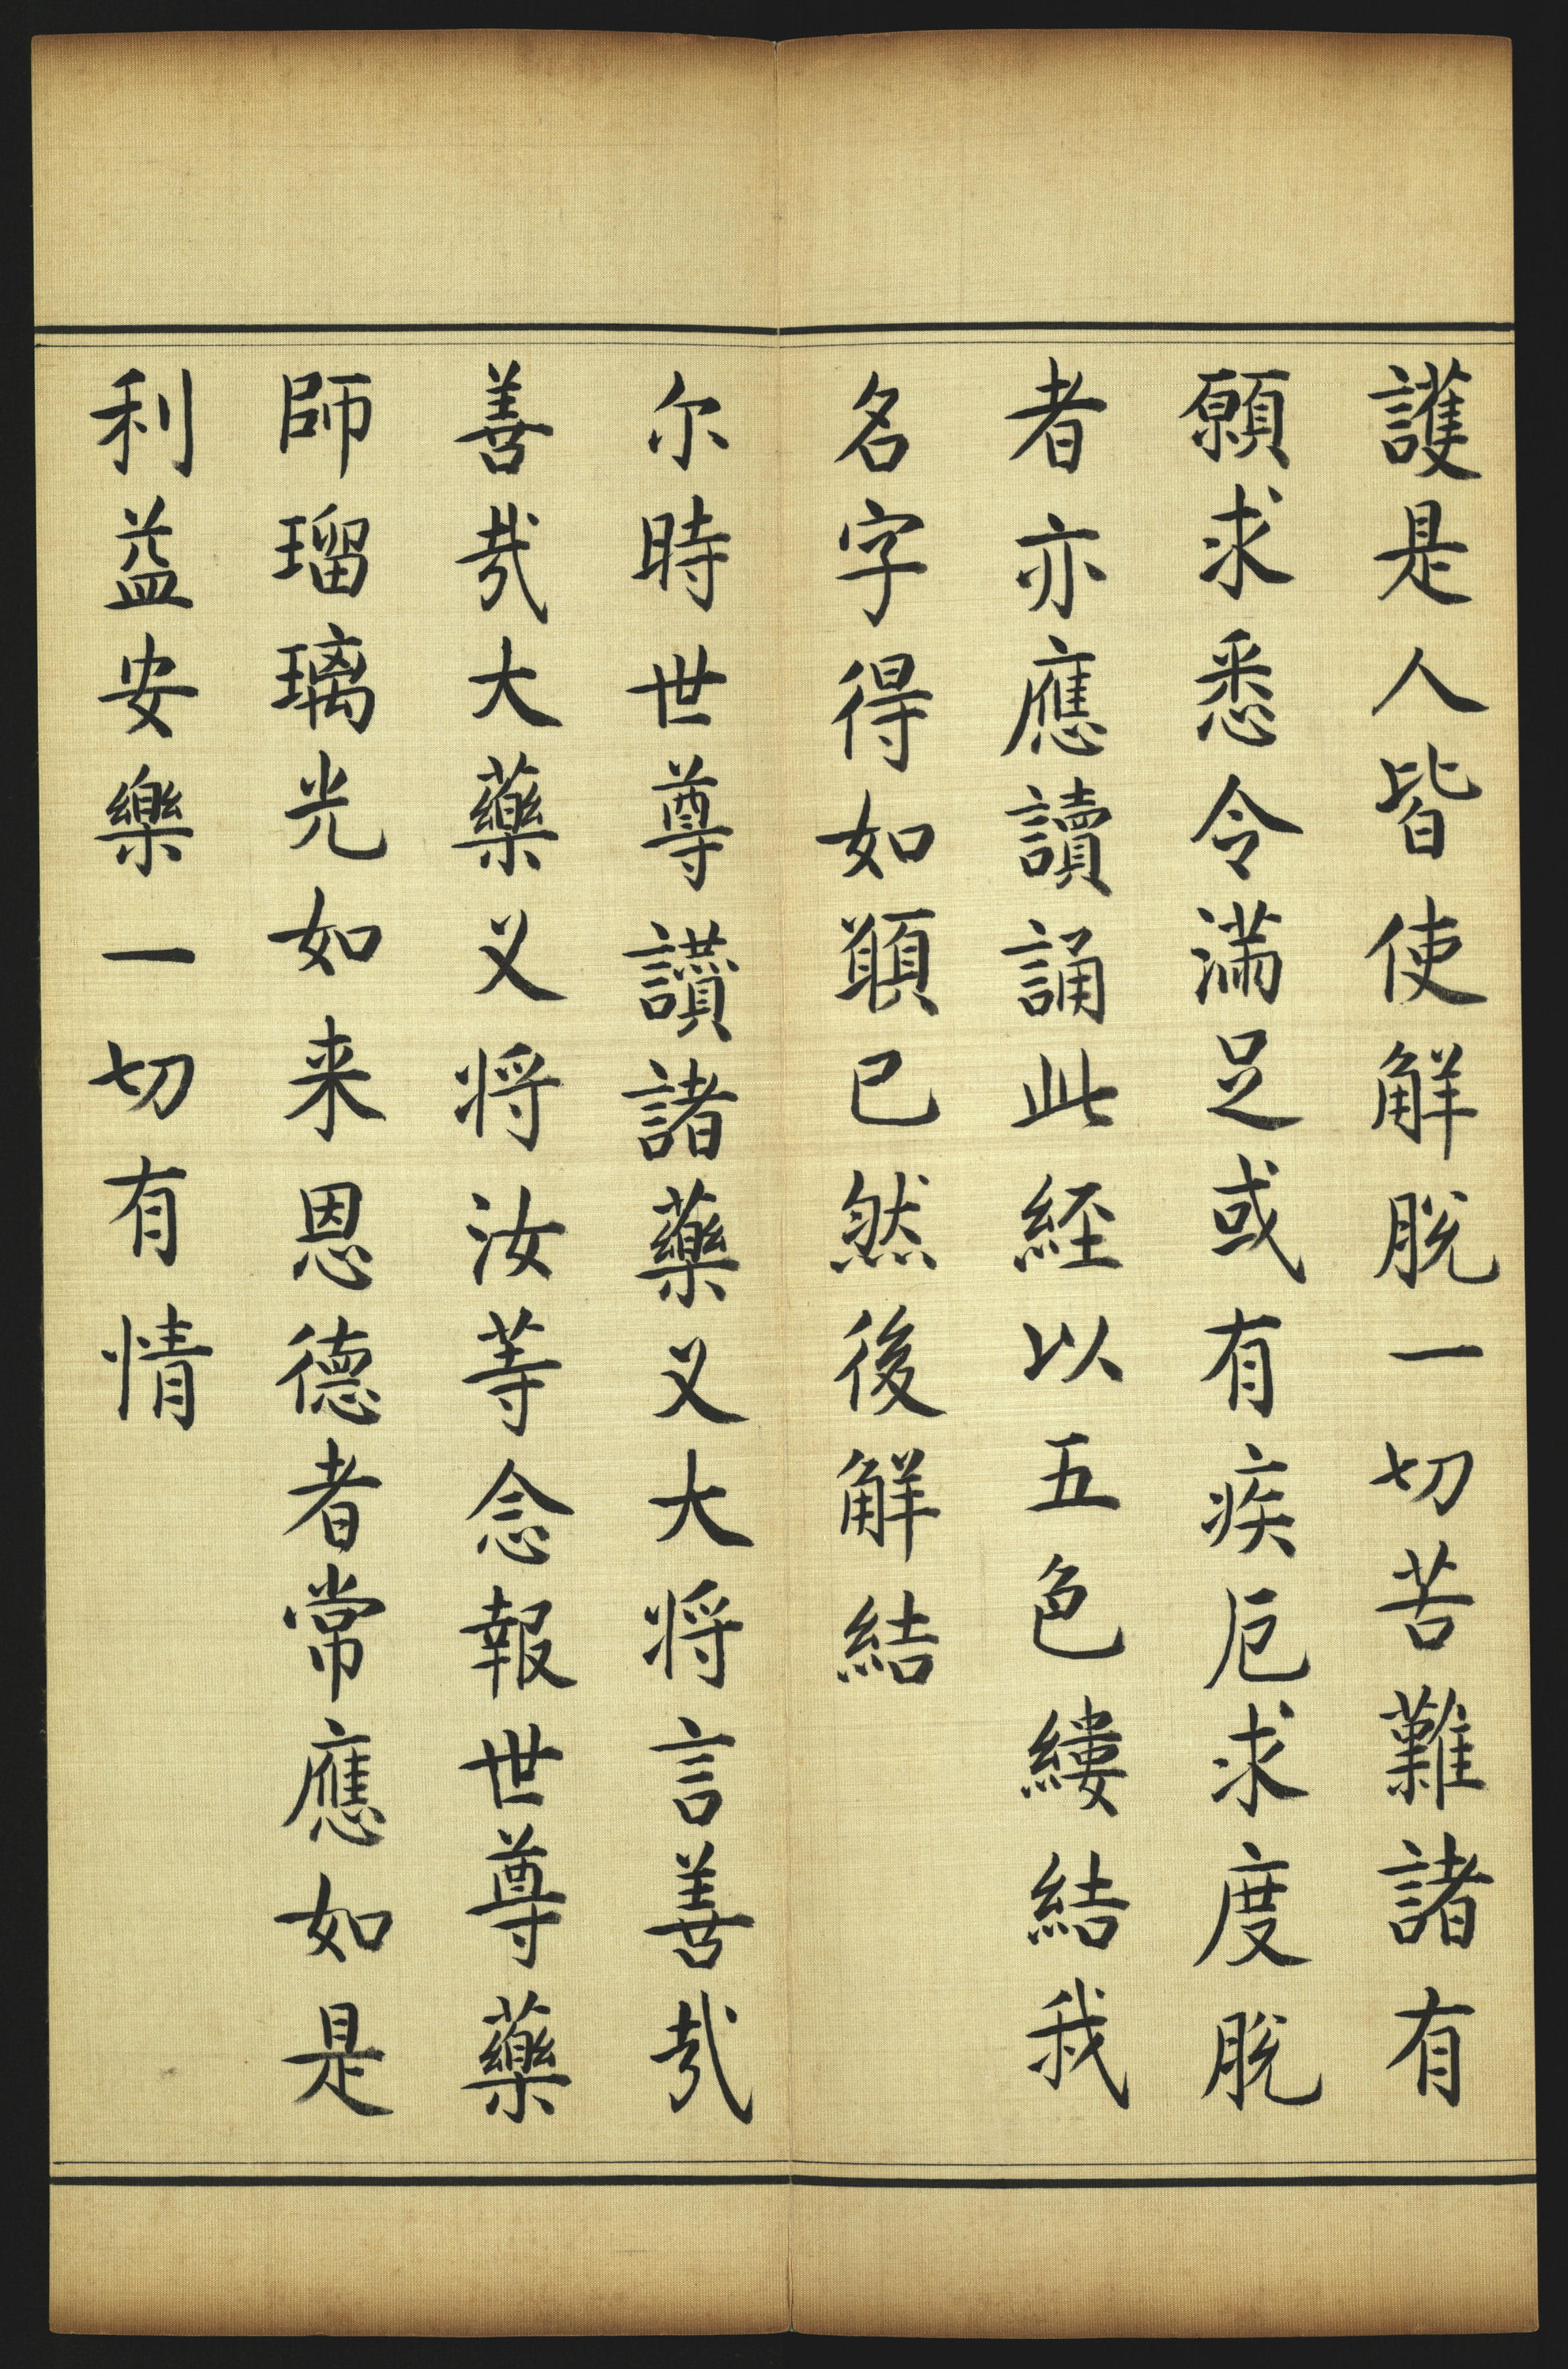 護是人皆使解脫一切苦難諸有
願求悉令滿足或有疾厄求度脫
者亦應讀誦此経以五色縷結我
名字得如顚已然後解結
尔時世尊讃諸藥叉大将言善哉
善哉大藥叉将汝等念報世尊藥
師瑠璃光如来恩德者常應如是
利益安樂一切有情